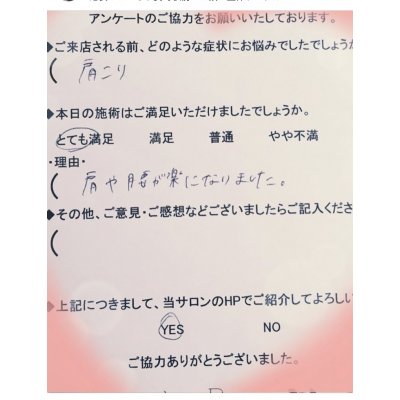 アンケートのご協力をお願いいたしております。
◆ご来店される前、どのような症状にお悩みでしたでしょうか
( 肩こり
◆本日の施術はご満足いただけましたでしょうか。
とても満足 満足 普通 やや不満
・理由・
( 肩や腰が楽になりました。
◆その他、ご意見・ご感想などございましたらご記入くださ
(
◆上記につきまして、当サロンのHPでご紹介してよろしい
YES NO
ご協力ありがとうございました。